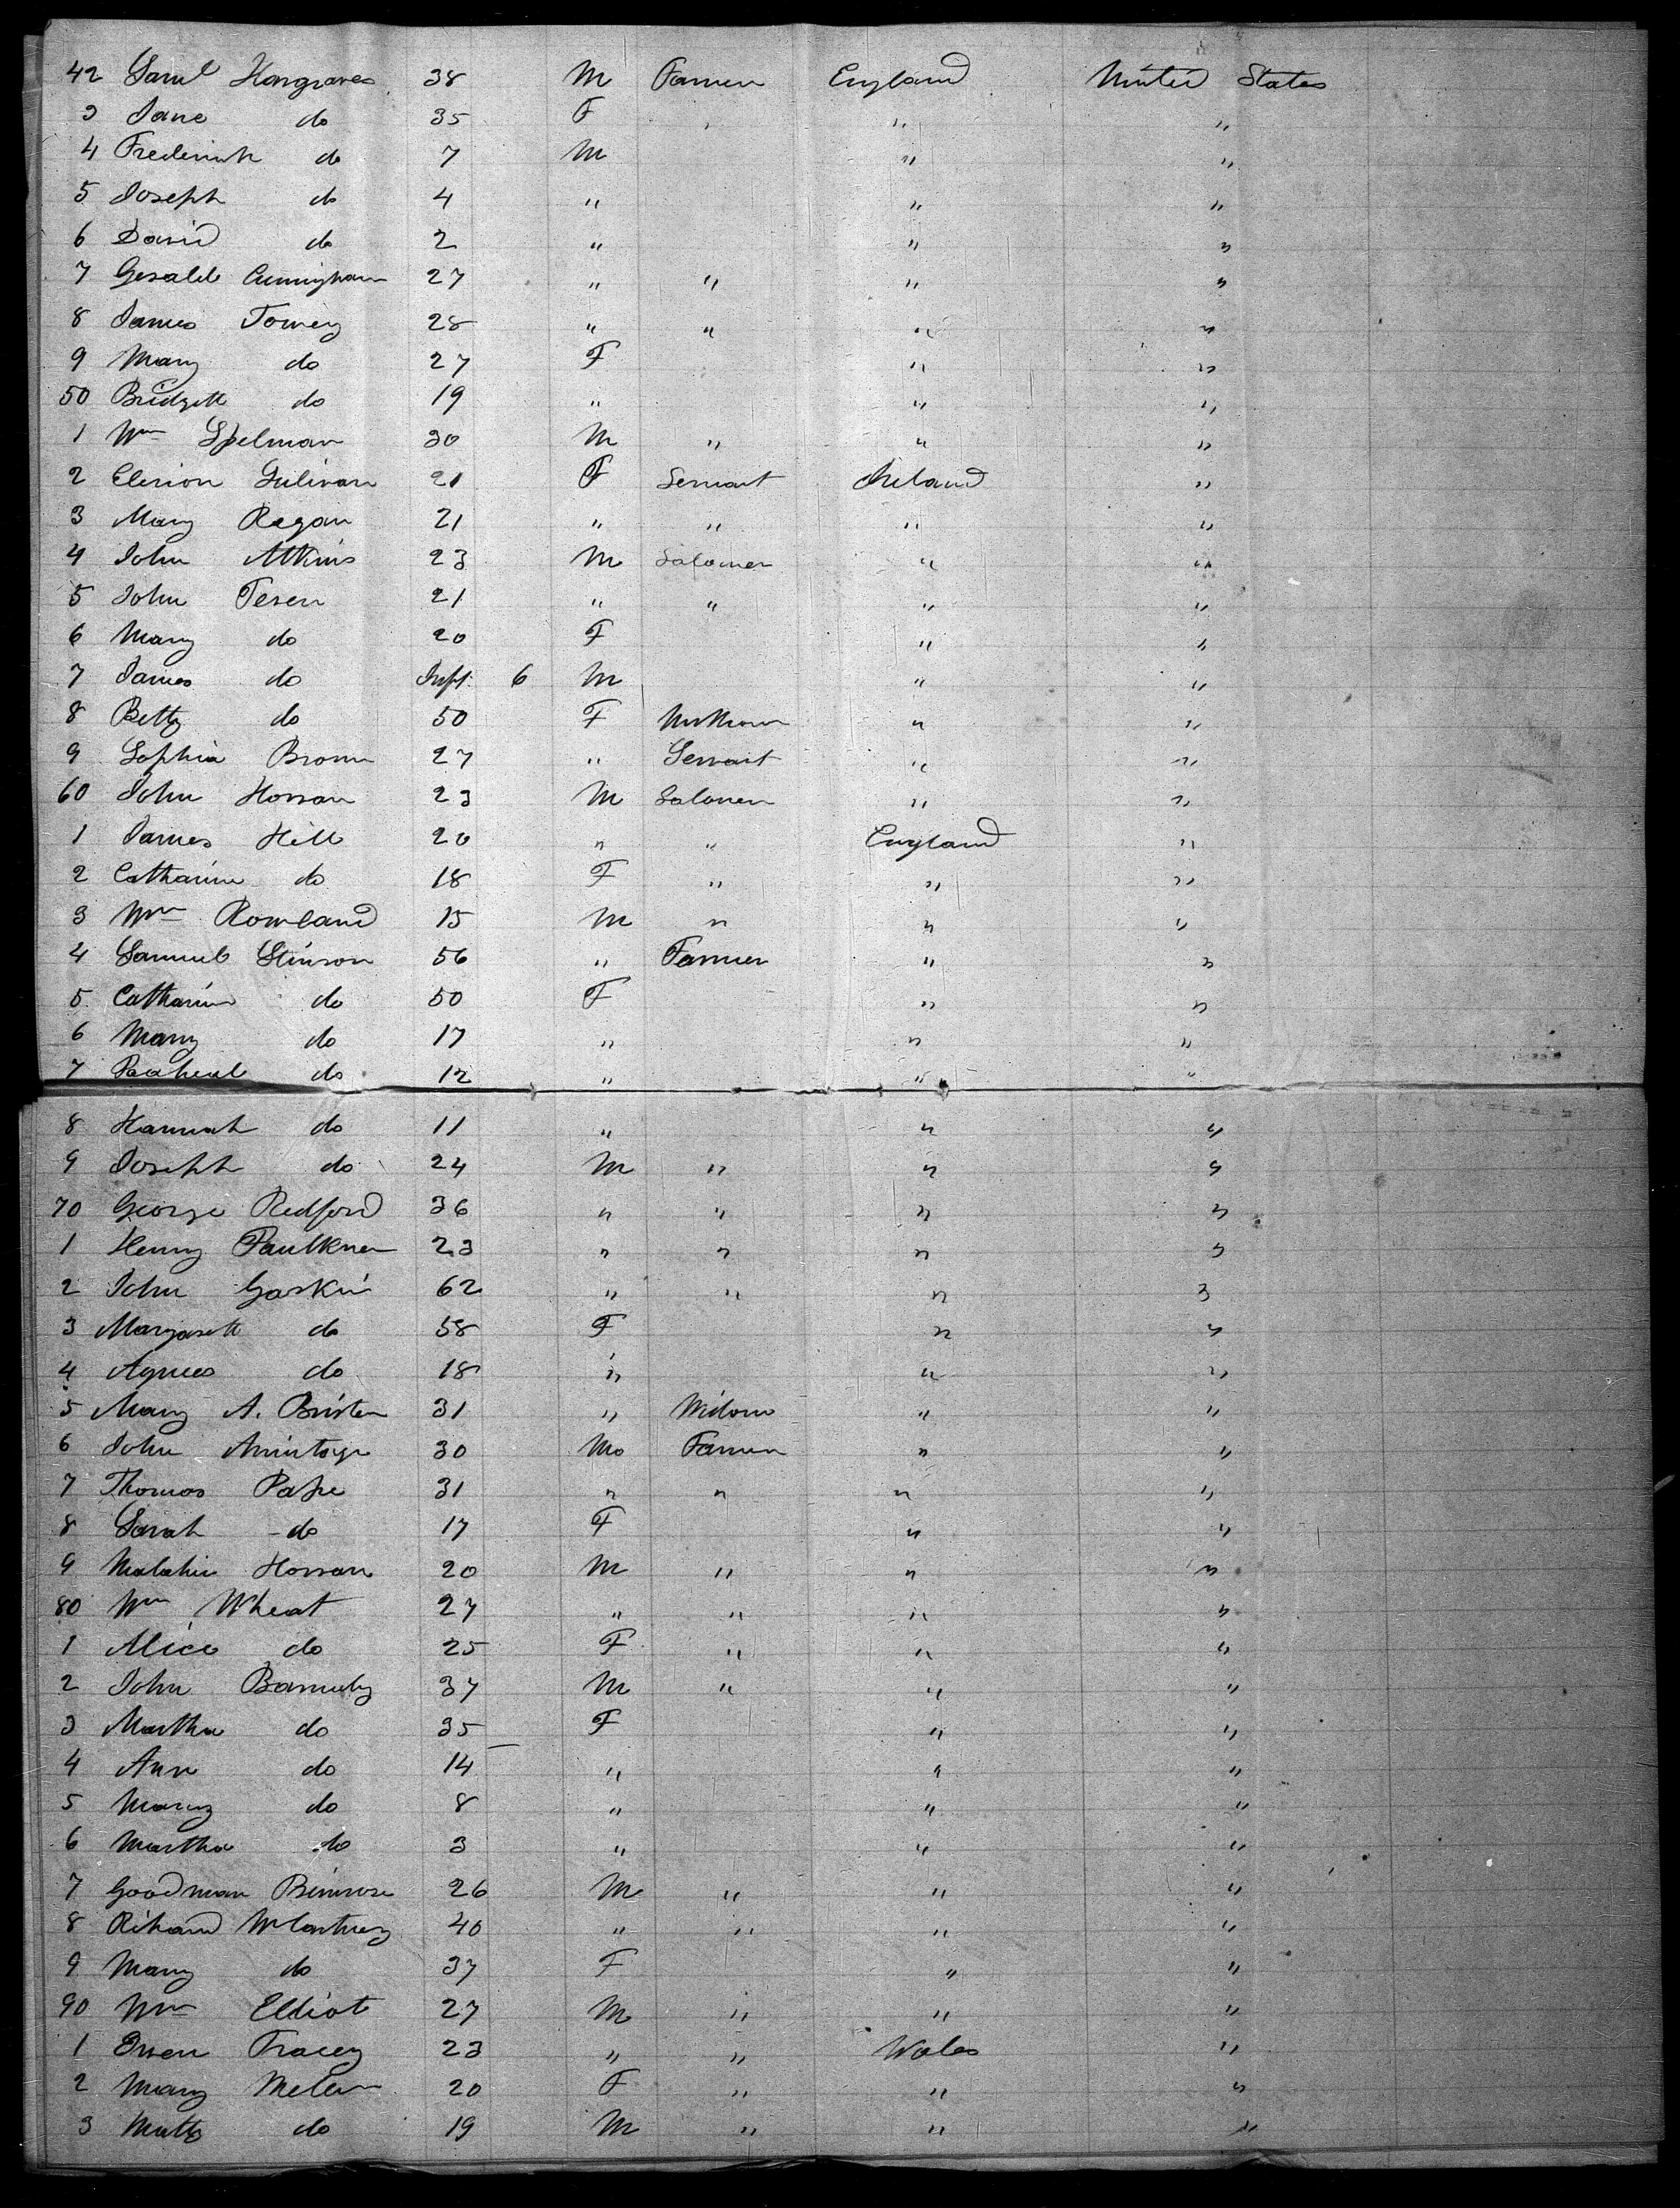 42 Saml Hargraves 38 M Farmer England United States
3 Jane do 35 F " " "
4 Frederick do 7 M " "
5 Joseph do 4 " " "
6 David do 2 " " "
7 27 " " " "
8 James Tomey 28 " " " "
9 Mary do 27 F " "
50 Bridgett do 19 " " "
1 Wm Spelman 30 M " " "
2 Sulivan 21 F Servant Ireland "
3 Mary Ragan 21 " " " "
4 John Atkins 23 M "  "
5 John Tesen 21 " " " "
6 Mary do 20 F " "
7 James do Inft. 6 M " "
8 Betty do 50 F Unknown " "
9 Sophia Brown 27 " Servant " "
60 John Horran 23 M " "
1 James Hill 20 " " England "
2 Catharine do 18 F " " "
3 Wm Rowland 15 M " " "
4 Samuel Stinson 56 " Farmer " "
5 Catharine do 50 F " "
6 Mary do 17 " " "
7 Racheal do 12 " " "
8 Hannah do 11 " " "
9 Joseph do 24 M " " "
70 George Redford 36 " " " "
1 Henry Faulkner 23 " " " "
2 John Gaskin 62 " " " "
3 Margarett do 58 F " "
4 Agnes do 18 " " "
5 Mary A. Brister 31 " Widow " "
6 John Armitage 30 M Farmer " "
7 Thomas Pape 31 " " " "
8 Sarah do 17 F " "
9 Malachi Horran 20 M " " "
80 Wm Wheat 27 " " " "
1 Alice do 25 F " " "
2 John Barnuby 37 M " " "
3 Martha do 35 F " "
4 Ann do 14 " " "
5 Mary do 8 " " "
6 Martha do 3 " " "
7 Goodman Primrose 26 M " " "
8 Richard McCartney 40 " " " "
9 Mary do 37 F " "
90 Wm Elliot 27 M " " "
1 Owen Tracey 23 " " Wales "
2 Mary 20 F " " "
3 Matt do 19 M " " "